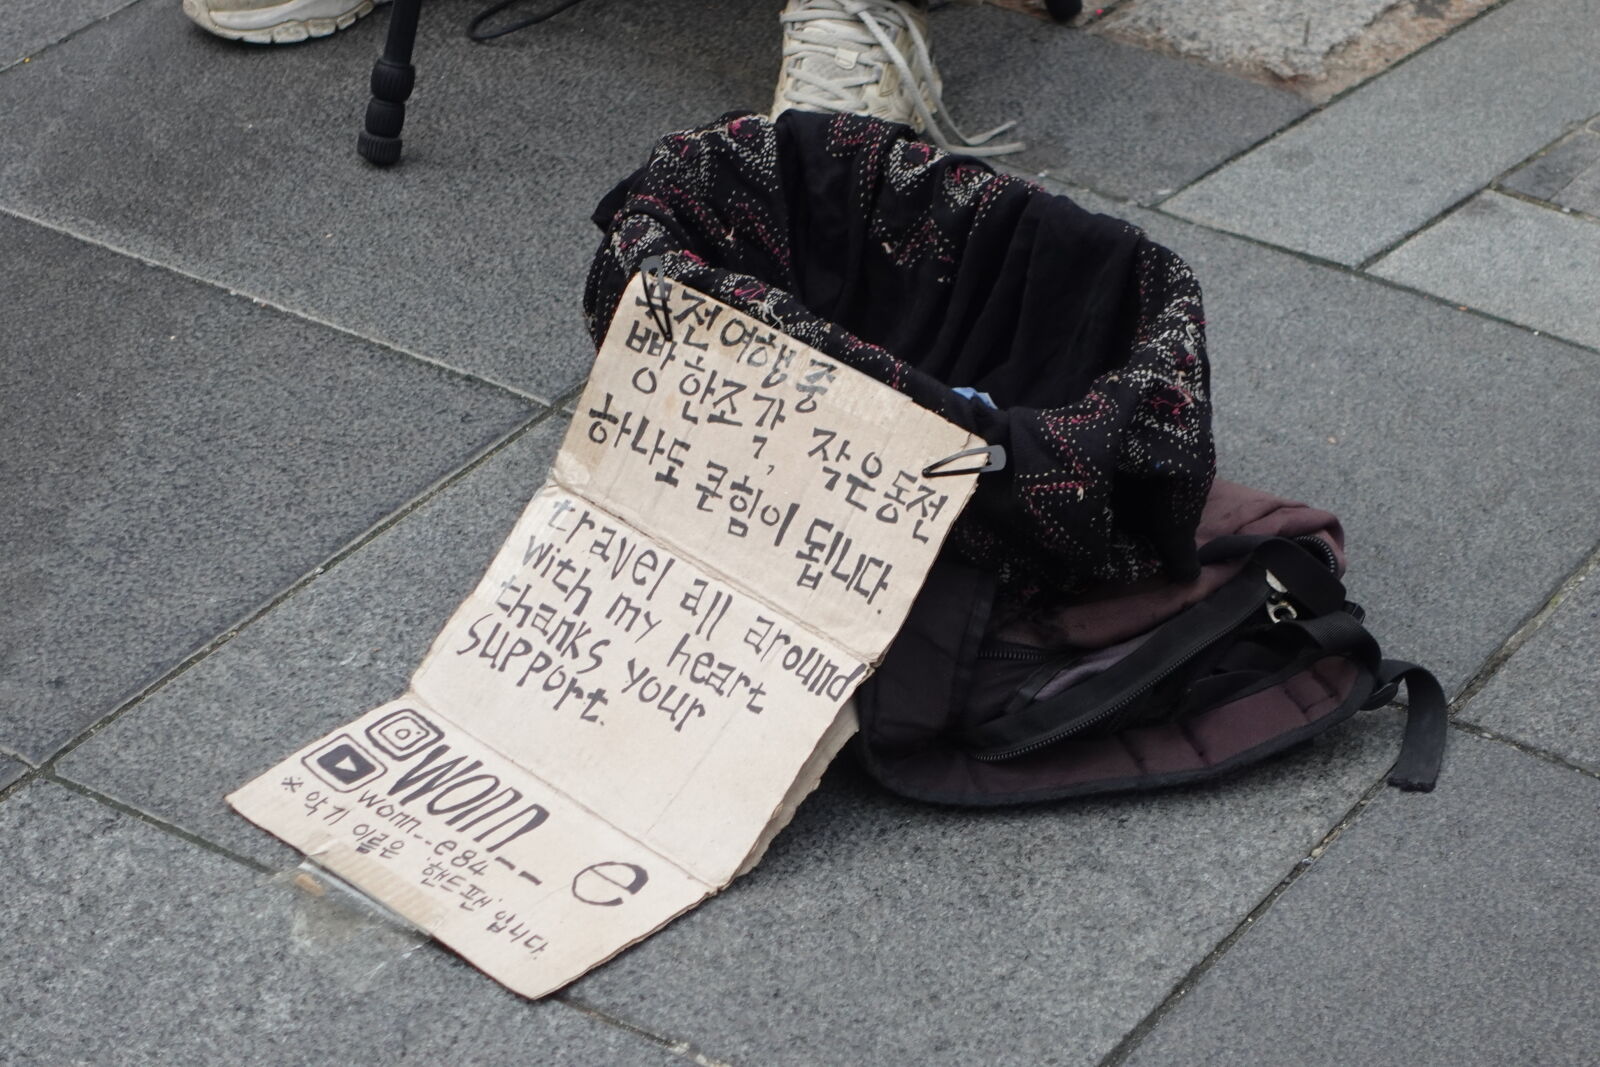 무전여행 중
빵 한조각, 작은동전
하나도 큰힘이 됩니다.
travel all around
with my heart
thanks your
support.
wonn__e
wonn__e84
※ 악기 이름은 '핸드팬' 입니다.